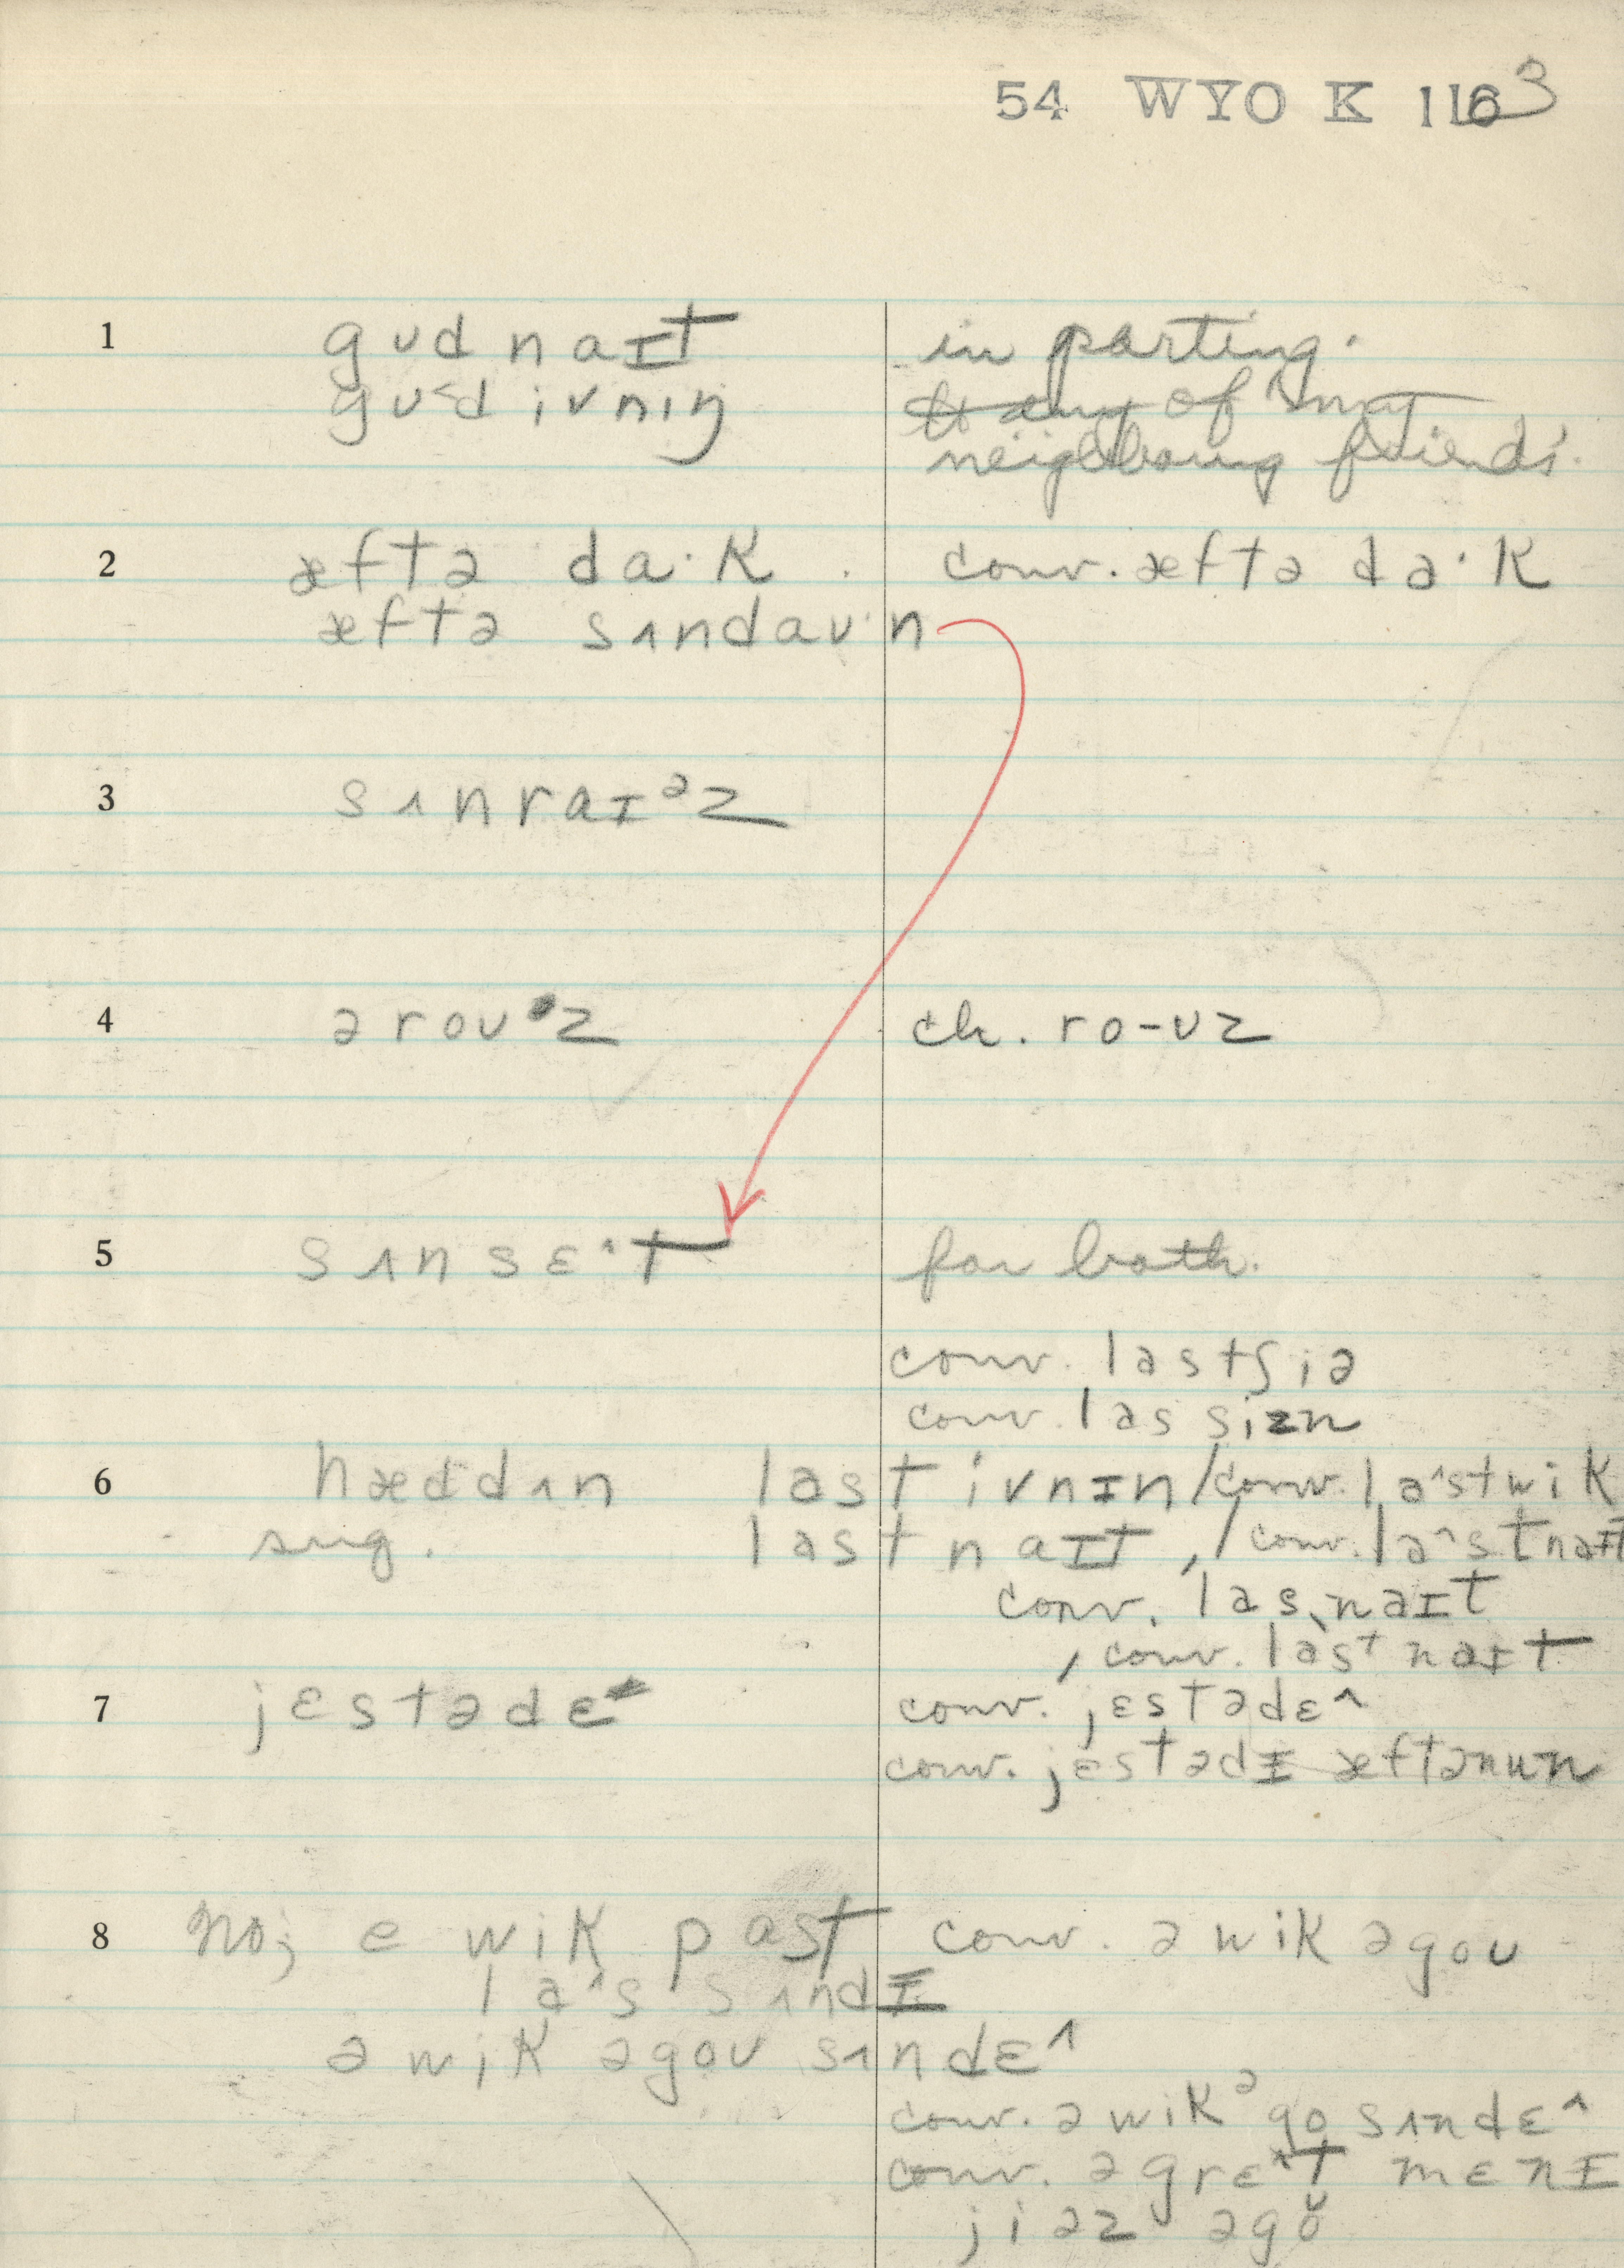 54 WYO K 1163
1 gʊd naɪt in parting.
gʊ˂d ivnɪŋ to any of my
neighboring friends.
2 æftə da·k . conv. æftə da·k
æftə sʌndaʊ·n
3 sʌnraɪᵊz
4 ə roʊz ch. ro-ʊz
5 sʌnsɛ^t for both.
conv. last ʃiə
conv. las sizn
6 hæddʌn last ivnɪn / conv. la^st wik
sug. last naɪt , / conv. la^st naɪt
conv. las naɪt
, conv. lasᵗ naɪt
7 jɛstədɛ conv. jɛstədɛ^
conv. jɛstədɪ æftənun
8 No; e wik past conv. ə wik əgoʊ
la^s sʌndɪ
ə wik əgoʊ sʌndɛ^
conv. ə wik ᵊgo sʌndɛ^
conv. ə grɛ^t mɛnɪ
jiəz əgo